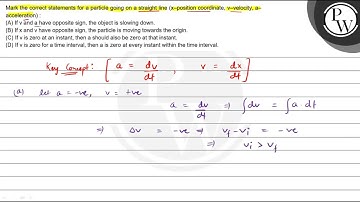 Mark the correct statements for a particle going on a straight line (x–position coordinate, v–velocity, a–acceleration) :
(A) If v and a have opposite sign, the object is slowing down.
(B) If x and v have opposite sign, the particle is moving towards the origin.
(C) If v is zero at an instant, then a should also be zero at that instant.
(D) If v is zero for a time interval, then a is zero at every instant within the time interval.
PW
Key Concept: [ a = dv/dt , v = dx/dt ]
(a) let a = -ve, v = +ve
a = dv/dt ⇒ ∫dv = ∫a·dt
⇒ Δv = -ve ⇒ vf - vi = -ve
⇒ vi > vf